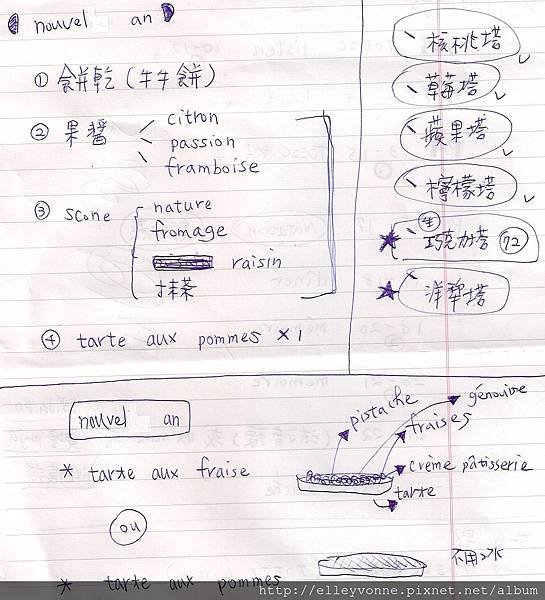 nouvel an
① 餅乾 (牛牛餅)
② 果醬
citron
passion
framboise
③ scone
nature
fromage
raisin
抹茶
④ tarte aux pommes ×1
、核桃塔
、草莓塔
、蘋果塔
、檸檬塔
★ 生 巧克力塔 72
★ 洋梨塔
nouvel an
* tarte aux fraise
ou
* tarte aux pommes
pistache
génoise
fraises
crème pâtisserie
tarte
http://elleyvonne.pixnet.net/album